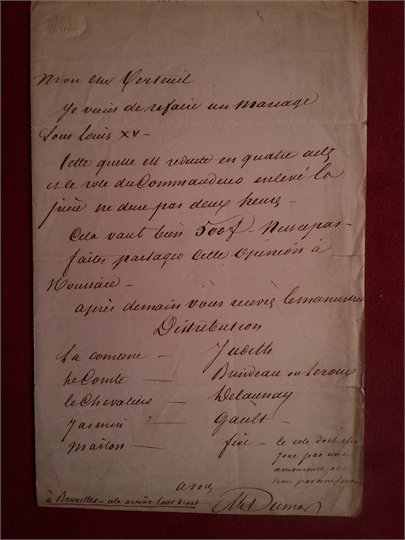 Mon cher Verteuil
Je viens de refaire un mariage
sous Louis XV –
telle quelle est reduite en quatre actes
et le role du Commandeur enlevé la
pièce ne dure pas deux heures –
Cela vaut bien 500f – N'est ce pas –
faites partager cette opinion à
Houssaie –
après demain vous recevez le manuscrit
Distribution
La comtesse — Judith
le Comte — Brindeau ou Leroux
le Chevalier — Delaunay
Jasmin — Gault –
Marton — fixe – ce role doit etre
joué par une
amoureuse et
non par une
à vous
à Bruxelles – cela arrive tous droit
Alex Dumas